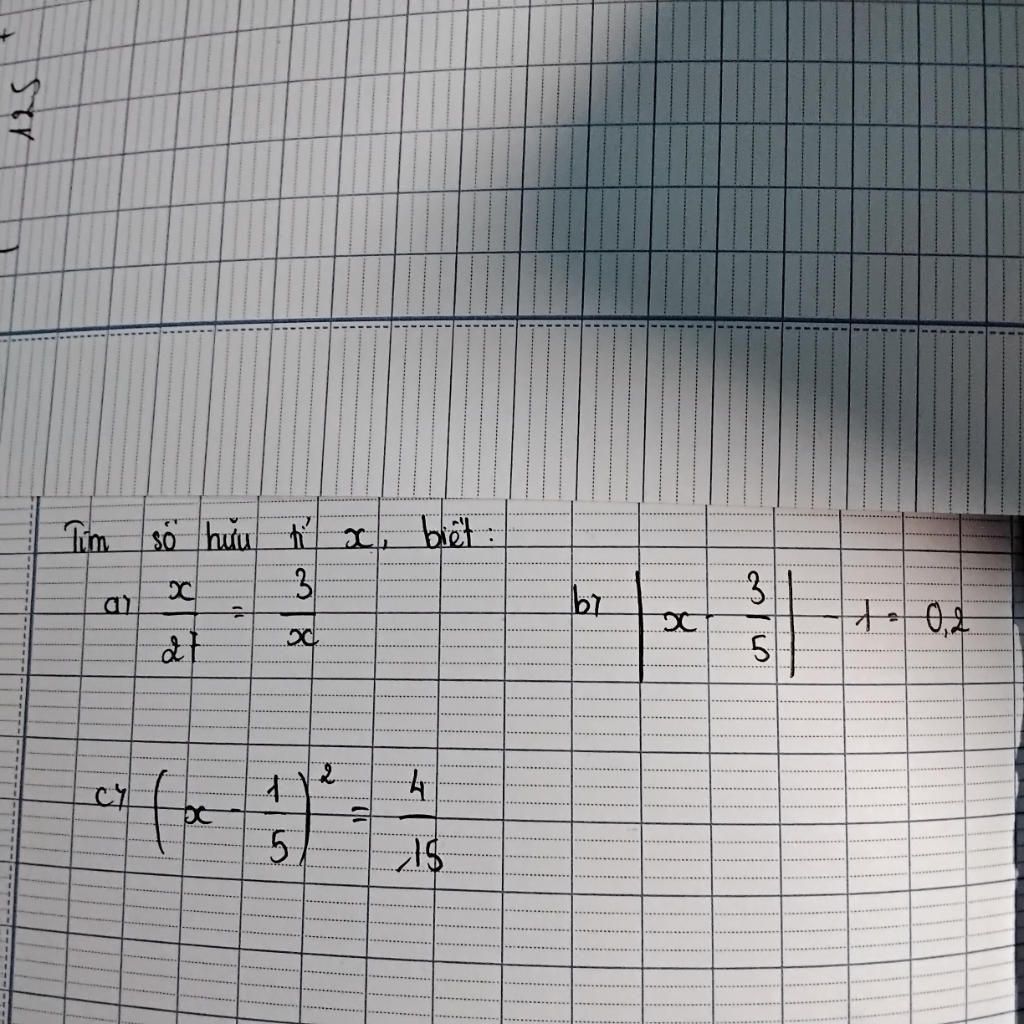 125
Tìm số hữu tỉ x, biết:
a) x/27 = 3/x
b) |x - 3/5| - 1 = 0,2
c) (x - 1/5)² = 4/